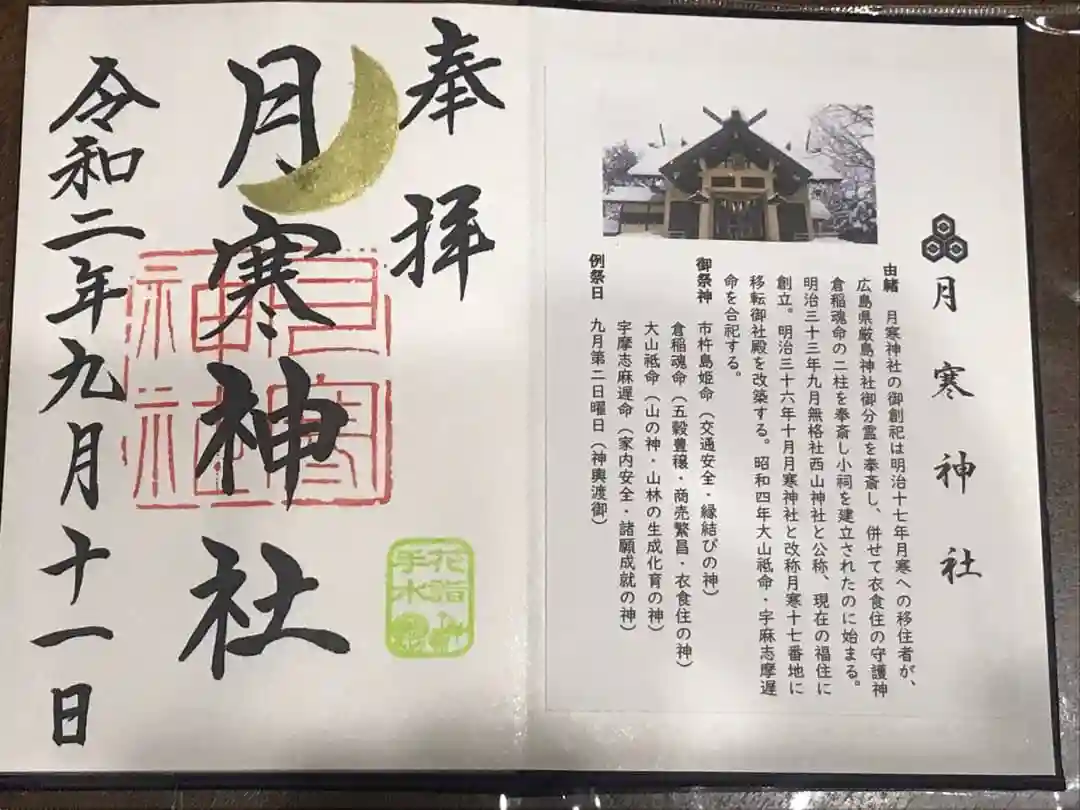 月寒神社
由緒 月寒神社の御創祀は明治十七年月寒への移住者が、
広島県厳島神社御分霊を奉斎し、併せて衣食住の守護神
倉稲魂命の二柱を奉斎し小祠を建立されたのに始まる。
明治三十三年九月無格社西山神社と公称、現在の福住に
創立。明治三十六年十月月寒神社と改称月寒十七番地に
移転御社殿を改築する。昭和四年大山祗命・宇麻志摩遅
命を合祀する。
御祭神 市杵島姫命(交通安全・縁結びの神)
倉稲魂命(五穀豊穣・商売繁昌・衣食住の神)
大山祗命(山の神・山林の生成化育の神)
宇摩志麻遅命(家内安全・諸願成就の神)
例祭日 九月第二日曜日(神輿渡御)
奉拝
月寒神社
月寒
神社
花詣
手水
令和二年九月十一日